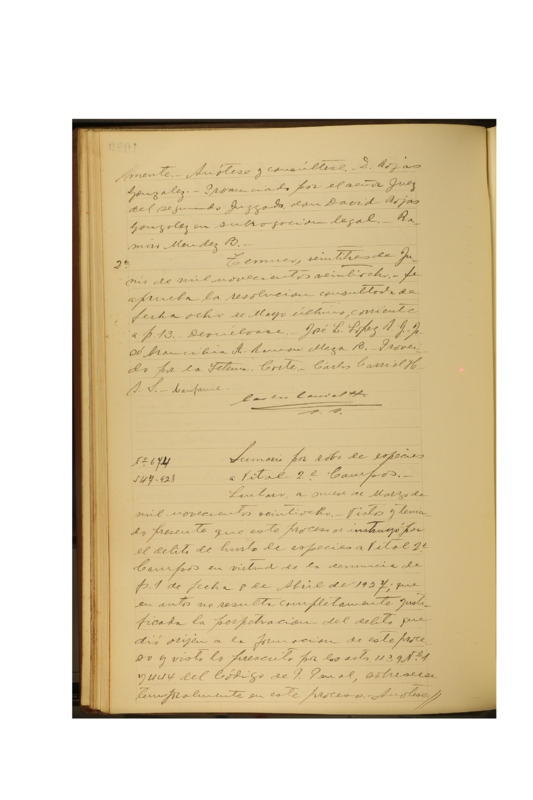 /mente.- Anótese y consúltese.- D. Rojas
González.- Pronunciado por el señor Juez
del segundo Juzgado, don David Rojas
González en subrogación legal.- Ra-
món Mendez B.-
2ª Temuco, veintitres de Ju-
nio de mil novecientos veintiocho.- Se
aprueba la resolución consultada de
fecha ocho de Mayo último, corriente
a f. 13. Devuélvase.- José L. López
A. Ramón Meza B.- Provei-
do por la Iltma. Corte.- Carlos
S.-
Nº 674 Sumario por robo de especies
547-928 a Vital 2º Campos.-
Lautaro, a de Marzo de
mil novecientos veintiocho.- Vistos y tenien-
do presente que este proceso se instruyó por
el delito de hurto de especies a Vital 2º
Campos en virtud de la denuncia de
f. 1 de fecha 8 de Abril de 1927; que
en autos no resulta completamente justi-
ficada la perpetracion del delito que
dió orijen a la formacion de este proce-
so y visto lo prescrito por los arts. 113 y Nº 1
y 444 del Código de P. Penal, sobresease
temporalmente en este proceso.- Anótese//